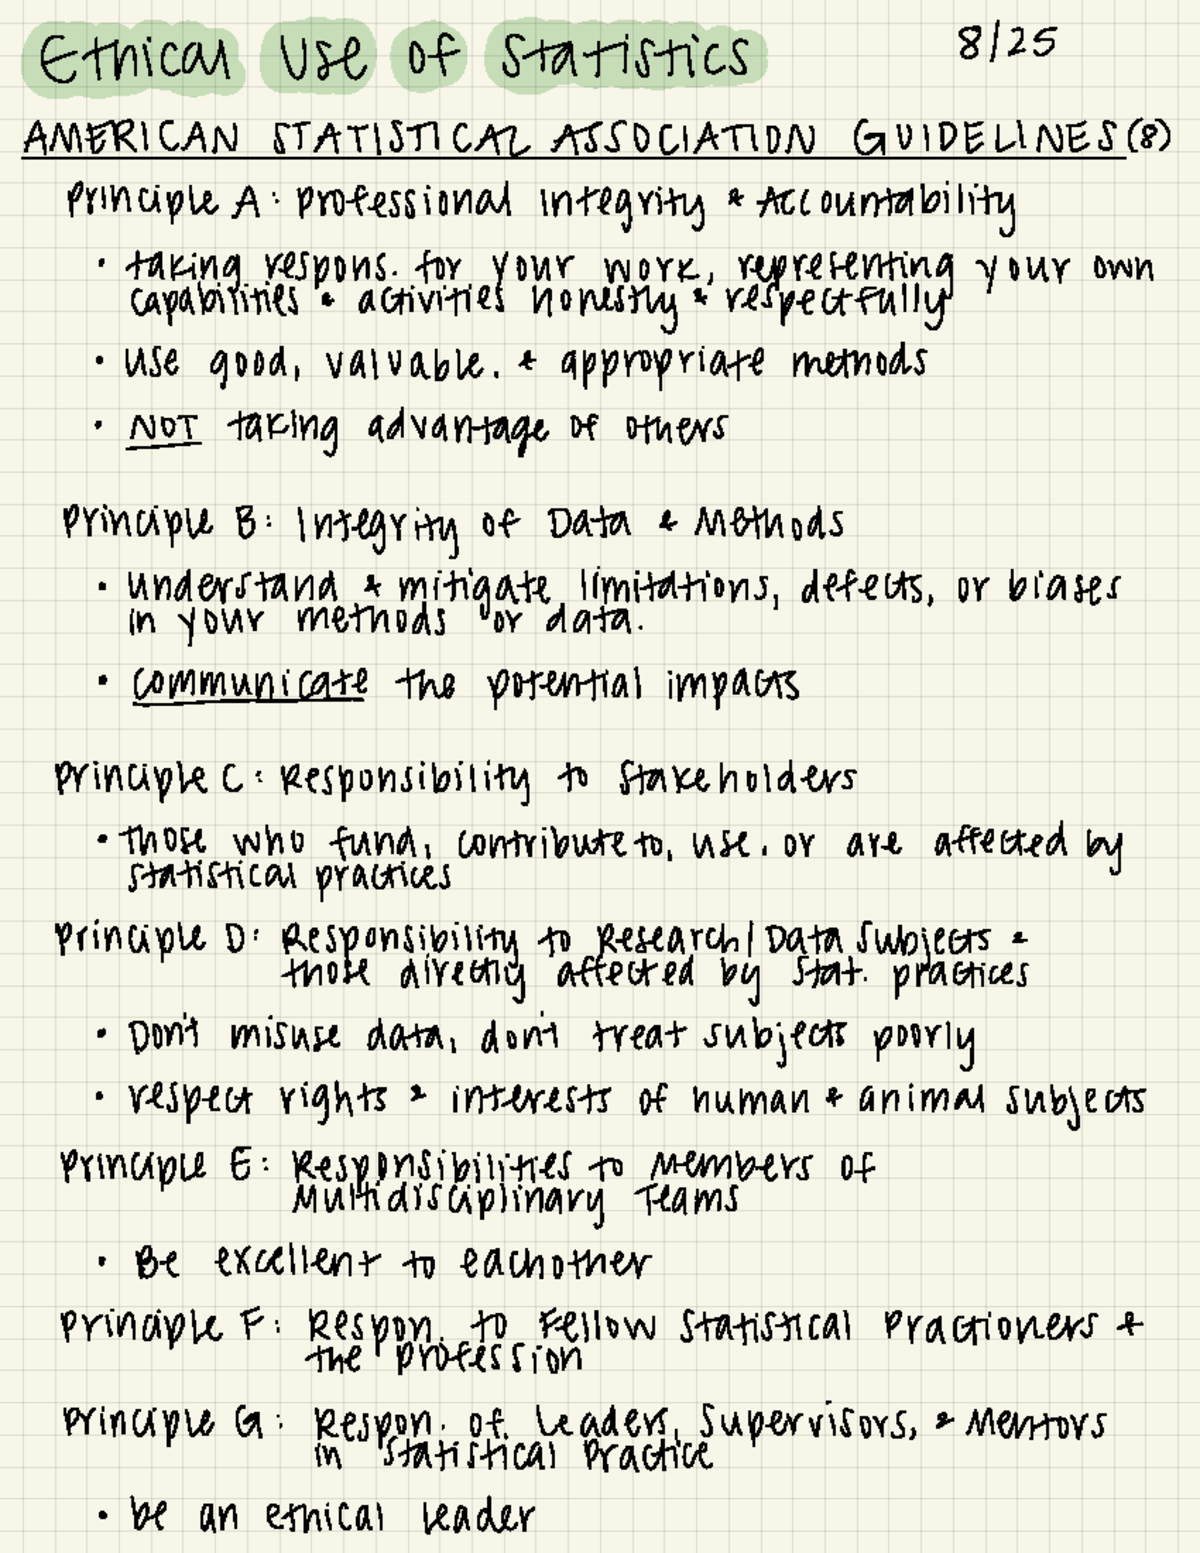 Ethical Use of Statistics 8/25
AMERICAN STATISTICAL ASSOCIATION GUIDELINES (8)
Principle A: Professional Integrity & Accountability
• taking respons. for your work, representing your own
capabilities & activities honestly & respectfully
• Use good, valuable, & appropriate methods
• NOT taking advantage of others
Principle B: Integrity of Data & Methods
• understand & mitigate limitations, defects, or biases
in your methods or data.
• communicate the potential impacts
Principle C: Responsibility to Stakeholders
• those who fund, contribute to, use, or are affected by
statistical practices
Principle D: Responsibility to Research/Data Subjects &
those directly affected by stat. practices
• Don't misuse data, don't treat subjects poorly
• respect rights & interests of human & animal subjects
Principle E: Responsibilities to Members of
Multidisciplinary Teams
• Be excellent to eachother
Principle F: Respon. to Fellow Statistical Practioners &
the profession
Principle G: Respon. of Leaders, Supervisors, & Mentors
in Statistical Practice
• be an ethical leader